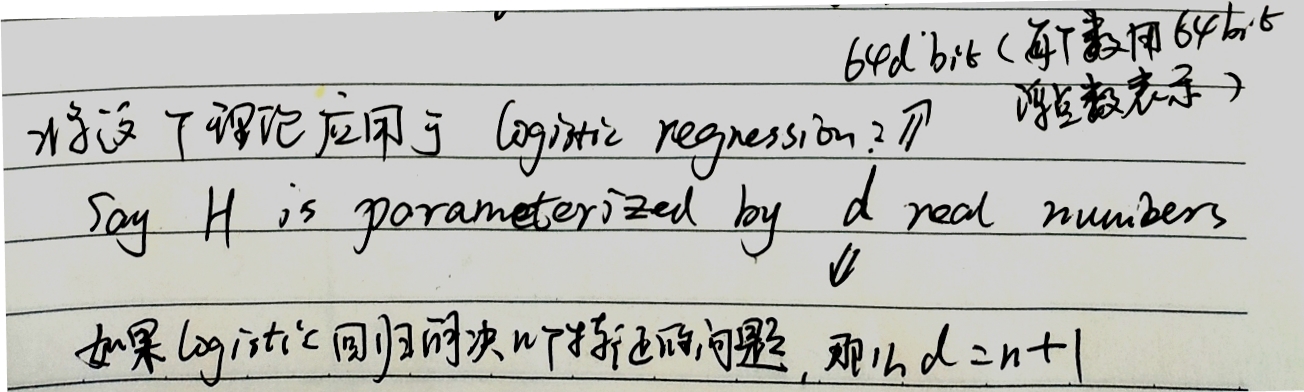 64d bit (每个数用64bit
浮点数表示)
将这个理论应用于 logistic regression:
Say H is parameterized by d real numbers
如果logistic回归解决n个特征的问题, 那么d=n+1